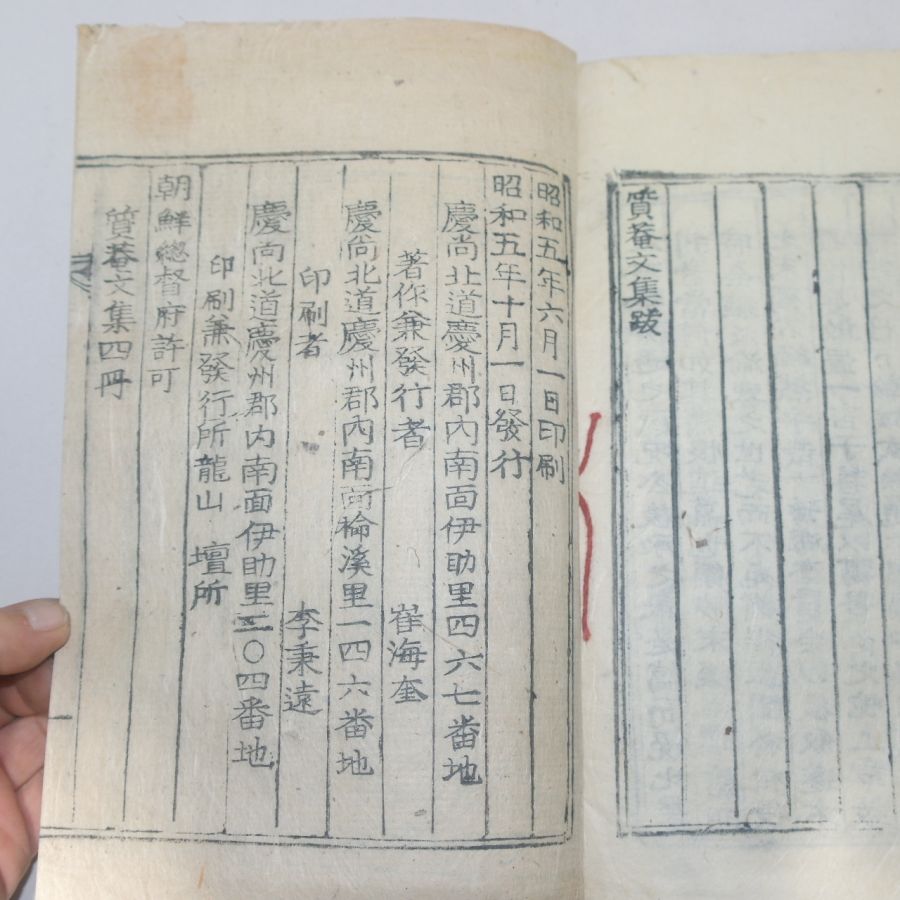 質菴文集跋
昭和五年六月一日印刷
昭和五年十月一日發行
慶尚北道慶州郡內南面伊助里四六七番地
著作兼發行者 崔海奎
慶尚北道慶州郡內南面檜溪里一四六番地
印刷者 李秉遠
慶尚北道慶州郡內南面伊助里二〇四番地
印刷兼發行所龍山 壇所
朝鮮總督府許可
質菴文集四冊